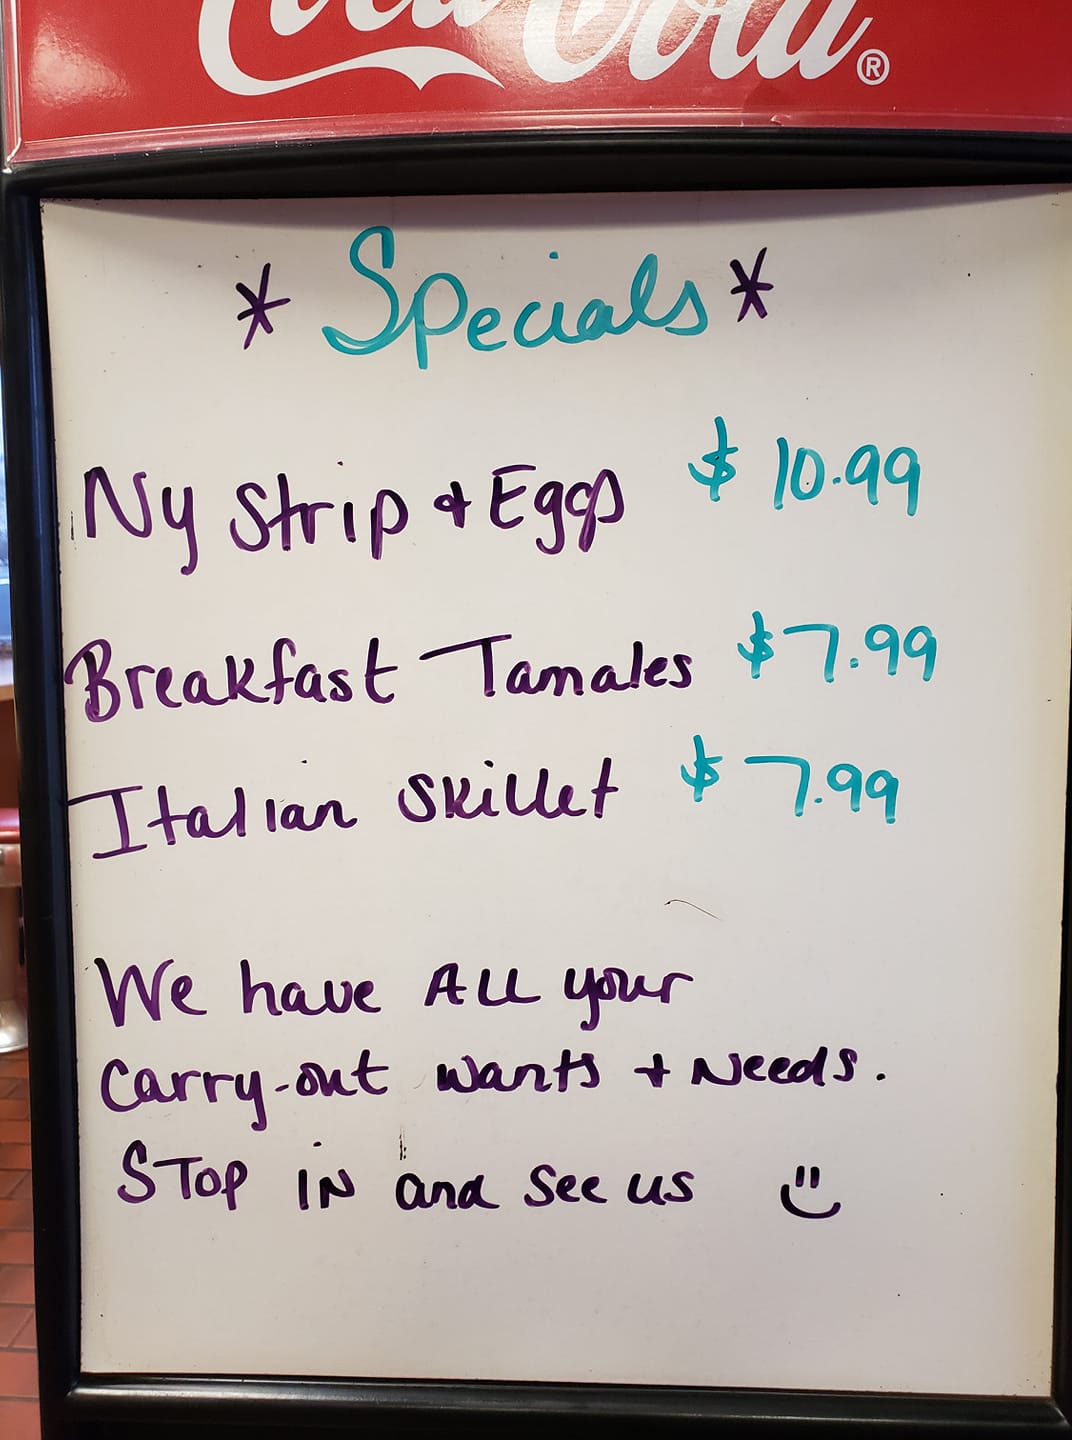 Coca-Cola®
* Specials *
Ny Strip + Eggs $ 10.99
Breakfast Tamales $7.99
Italian Skillet $7.99
We have ALL your
Carry-out wants + Needs.
STOP IN and see us